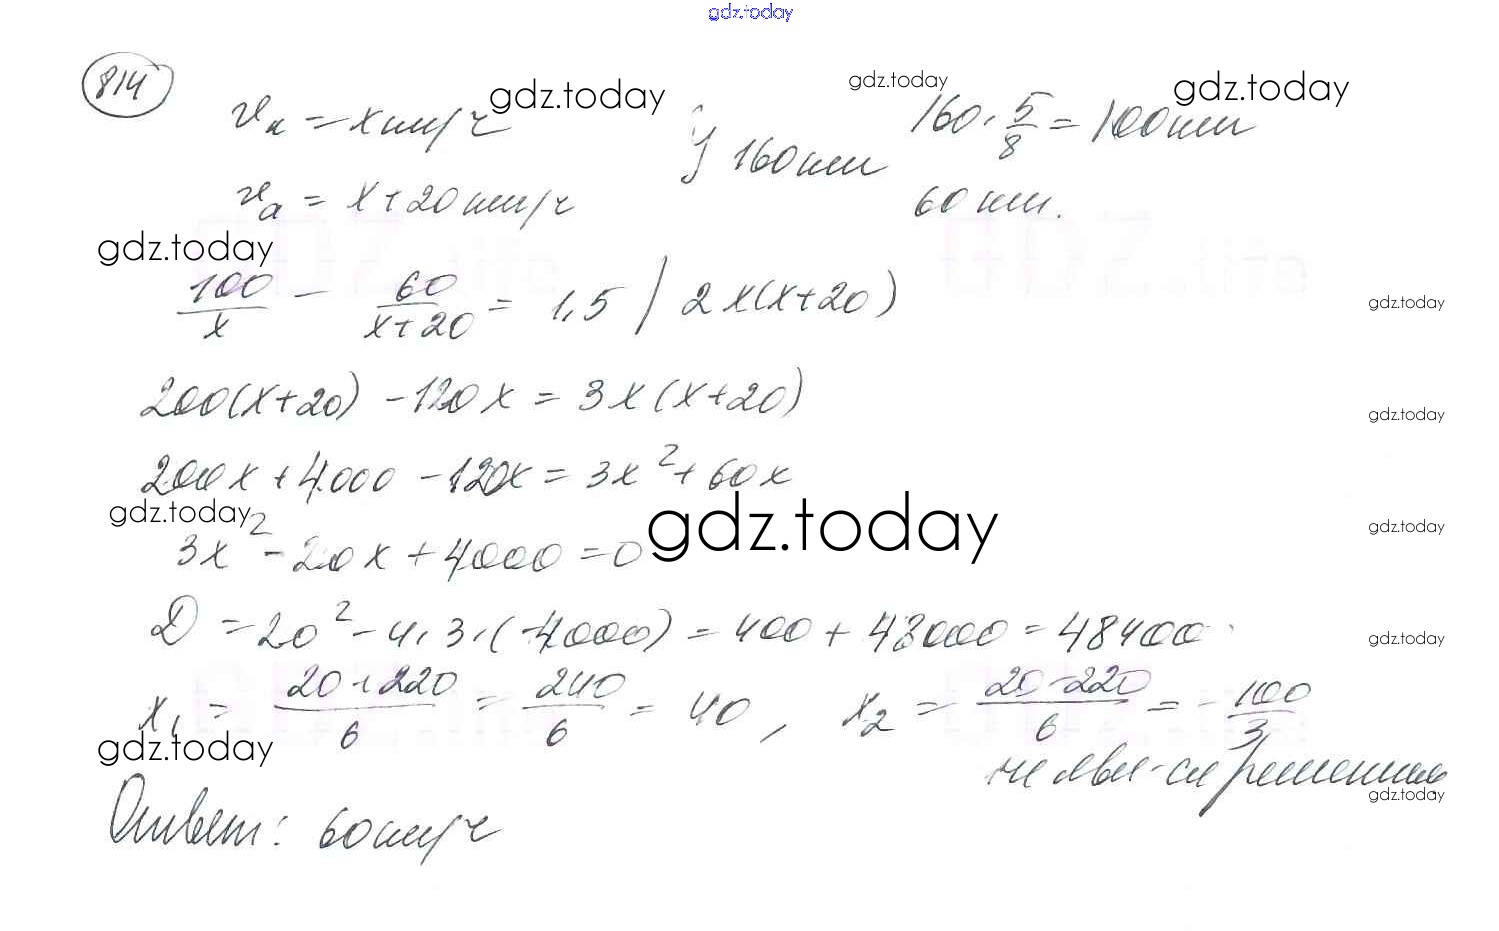 gdz.today
814
gdz.today
gdz.today
gdz.today
vₐ = x км/ч
} 160 км
160 · 5/8 = 100 км
vₐ = x + 20 км/ч
60 км.
gdz.today
100/x - 60/(x+20) = 1,5 | 2x(x+20)
gdz.today
200(x+20) - 120x = 3x(x+20)
gdz.today
200x + 4000 - 120x = 3x² + 60x
gdz.today
gdz.today
gdz.today
3x² - 20x + 4000 = 0
D = 20² - 4 · 3 · (-4000) = 400 + 48000 = 48400
gdz.today
x₁ = (20+220)/6 = 240/6 = 40, x₂ = (20-220)/6 = -100/3
gdz.today
не явл-ся решением
gdz.today
Ответ: 60 км/ч